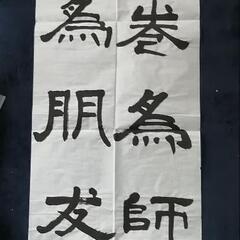 岩為師
為朋友